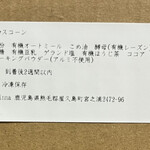 スコーン
有機オートミール　こめ油　酵母(有機レーズン
機　有機豆乳　ゲランド塩　有機ほうじ茶　ココア
ーキングパウダー(アルミ不使用)
到着後2週間以内
冷凍保存
鹿児島県熊毛郡屋久島町宮之浦2472-96